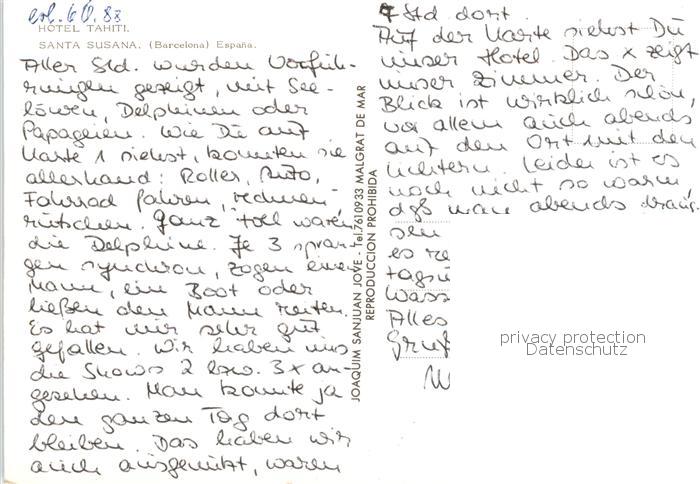 erl. 6.6.88
HOTEL TAHITI.
SANTA SUSANA. (Barcelona) España.
Aller Std. wurden Vorfüh-
rungen gezeigt, mit See-
löwen, Delphinen oder
Papageien. Wie Du auf
Karte 1 siehst, konnten sie
allerhand: Roller, Auto,
Fahrrad fahren, rechnen
rutschen. Ganz toll waren
die Delphine. Je 3 spran-
gen synchron, zogen einen
Mann, ein Boot oder
ließen den Mann reiten.
Es hat mir sehr gut
gefallen. Wir haben uns
die Shows 2 bzw. 3x an-
gesehen. Man konnte ja
den ganzen Tag dort
bleiben. Das haben wir
auch ausgenützt, waren
JOAQUIM SANJUAN JOVE - Tel. 7610933 MALGRAT DE MAR
REPRODUCCION PROHIBIDA
7 Std. dort.
Auf der Karte siehst Du
unser Hotel. Das x zeigt
unser Zimmer. Der
Blick ist wirklich schön,
vor allem auch abends
auf den Ort mit den
Lichtern. Leider ist es
noch nicht so warm,
daß man abends drauß
es
tags
Wass
Alles
privacy protection
Datenschutz